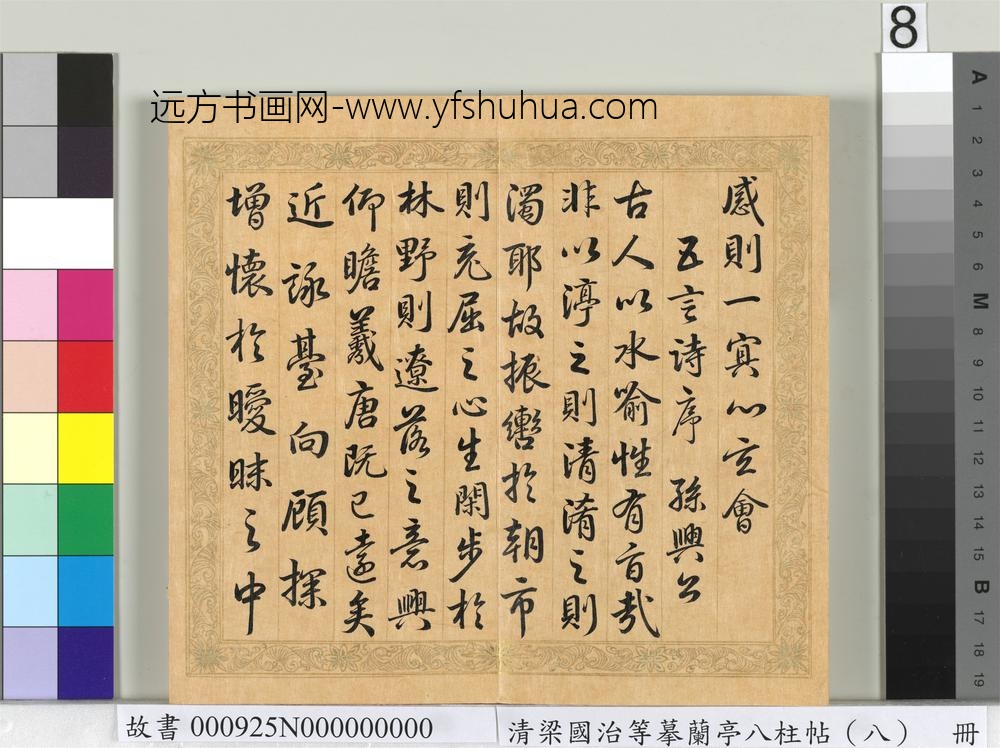 8
远方书画网-www.yfshuhua.com
感則一寘心玄會
五言詩序 孫興公
古人以水喻性有旨哉
非以渟之則清淆之則
濁耶故振轡於朝市
則充屈之心生閑步於
林野則遼落之意興
仰瞻羲唐既已遠矣
近詠臺向顧探
增懷於曖昧之中
A
1
2
3
4
5
6
M
8
9
10
11
12
13
14
15
B
17
18
19
故書 000925N000000000
清梁國治等摹蘭亭八柱帖（八） 冊